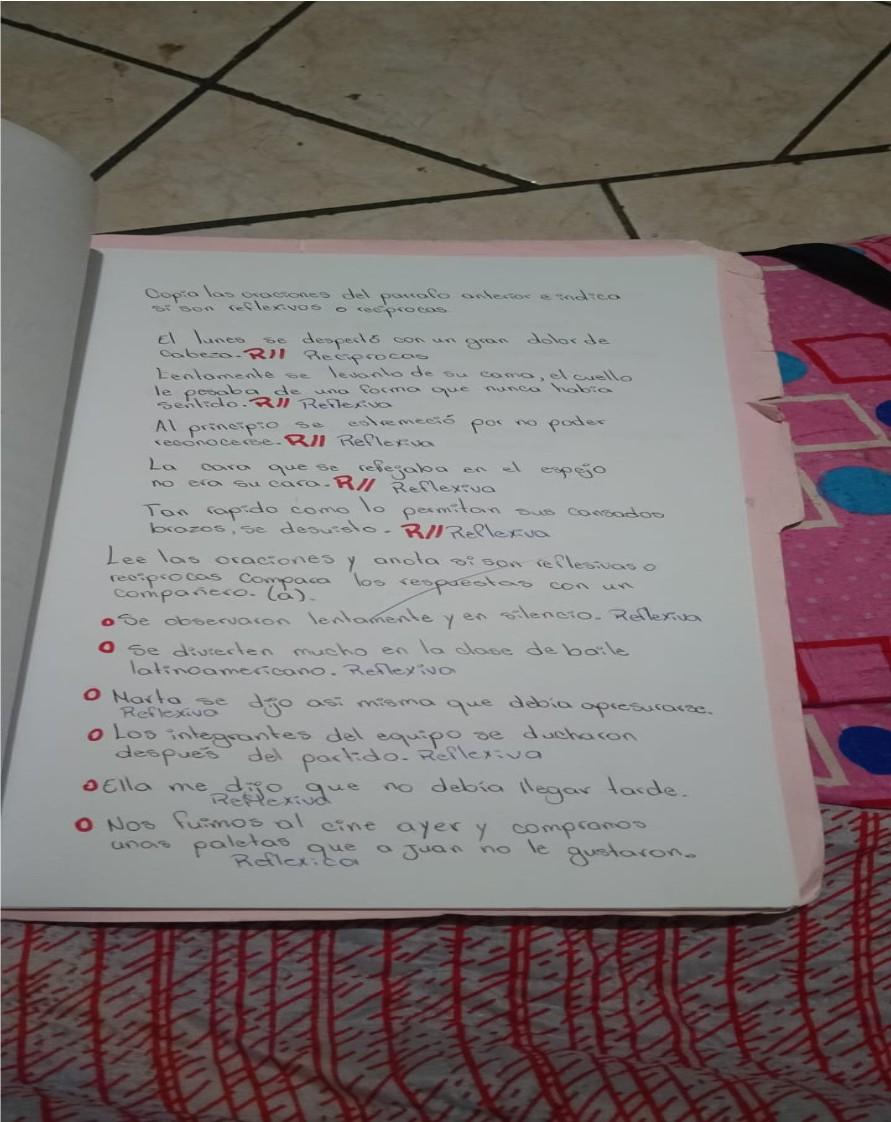 Copia las oraciones del parrafo anterior e indica
si son reflexivos o reciprocas.
El lunes se despertó con un gran dolor de
Cabeza. R// Reciprocas
Lentamente se levanto de su cama, el cuello
le pesaba de una forma que nunca había
sentido. R// Reflexiva
Al principio se estremeció por no poder
reconocerse. R// Reflexiva
La cara que se reflejaba en el espejo
no era su cara. R// Reflexiva
Tan rapido como lo permitan sus cansados
brazos, se desvisto. R// Reflexiva
Lee las oraciones y anota si son reflesivas o
reciprocas Compara los respuestas con un
compañero. (a).
Se observaron lentamente y en silencio. Reflexiva
Se divierten mucho en la clase de baile
latinoamericano. Reflexiva
Marta se dijo asi misma que debia apresurarse.
Reflexiva
Los integrantes del equipo se ducharon
después del partido. Reflexiva
Ella me dijo que no debía llegar tarde.
Reflexiva
Nos fuimos al cine ayer y compramos
unas paletas que a Juan no le gustaron.
Reflexica